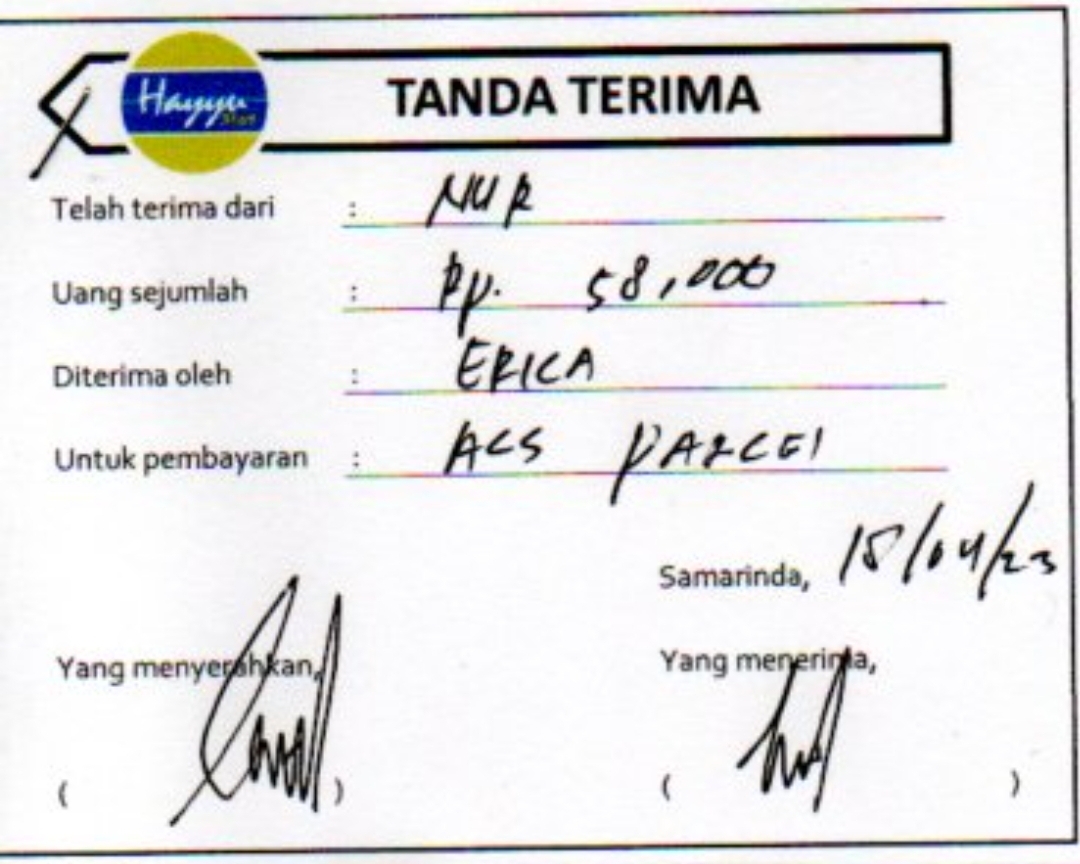 Hayyu
TANDA TERIMA
Telah terima dari : NUR
Uang sejumlah : Rp. 58,000
Diterima oleh : ERICA
Untuk pembayaran : ACS PARCEl
Samarinda, 15/04/23
Yang menyerahkan, Yang menerima,
( ) ( )